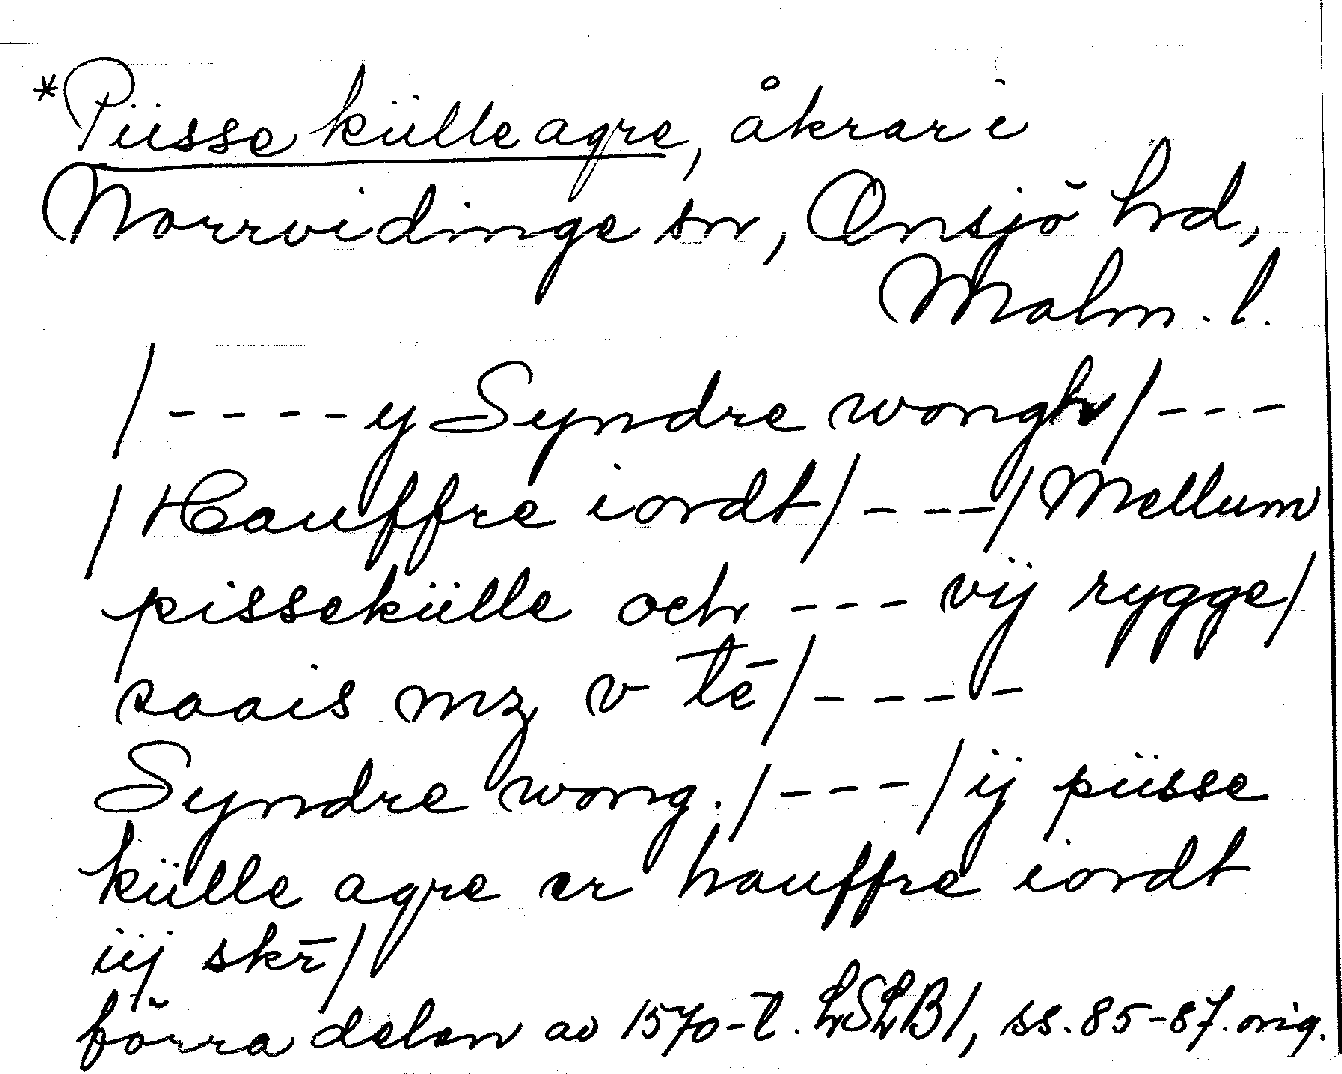 *Püsse külle agre, åkrar i
Norrvidinge sn, Onsjö hrd,
Malm. l.
/----y Syndre wongh/---
/Hauffre iordt/---/Mellum
pissekülle och --- vij rygge/
saais mz v tē/----
Syndre wong./---/ij püsse
külle agre er hauffre iordt
iij skr̄/
förra delen av 1570-t. LSLB1, ss. 85-87. orig.